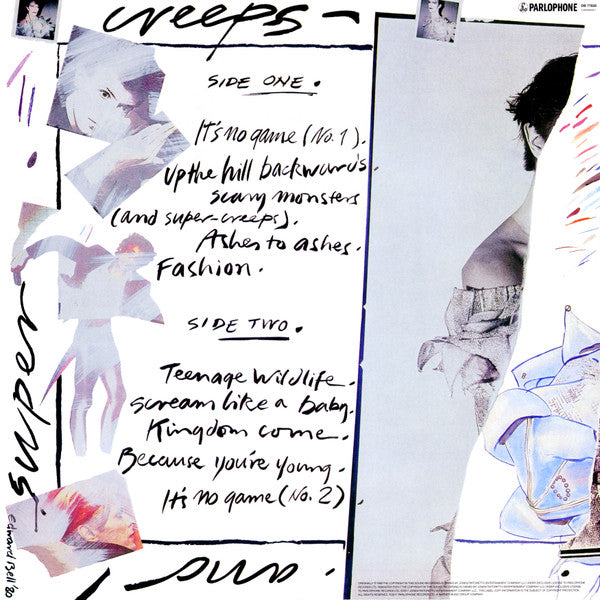 creeps -
PARLOPHONE
SIDE ONE.
It's no game (No. 1).
Up the hill backwards.
Scary monsters
(and super-creeps).
Ashes to ashes.
Fashion.
SIDE TWO.
Teenage Wildlife.
Scream like a Baby.
Kingdom come.
Because you're young.
It's no game (No. 2)
super
and
Edward Bell '80